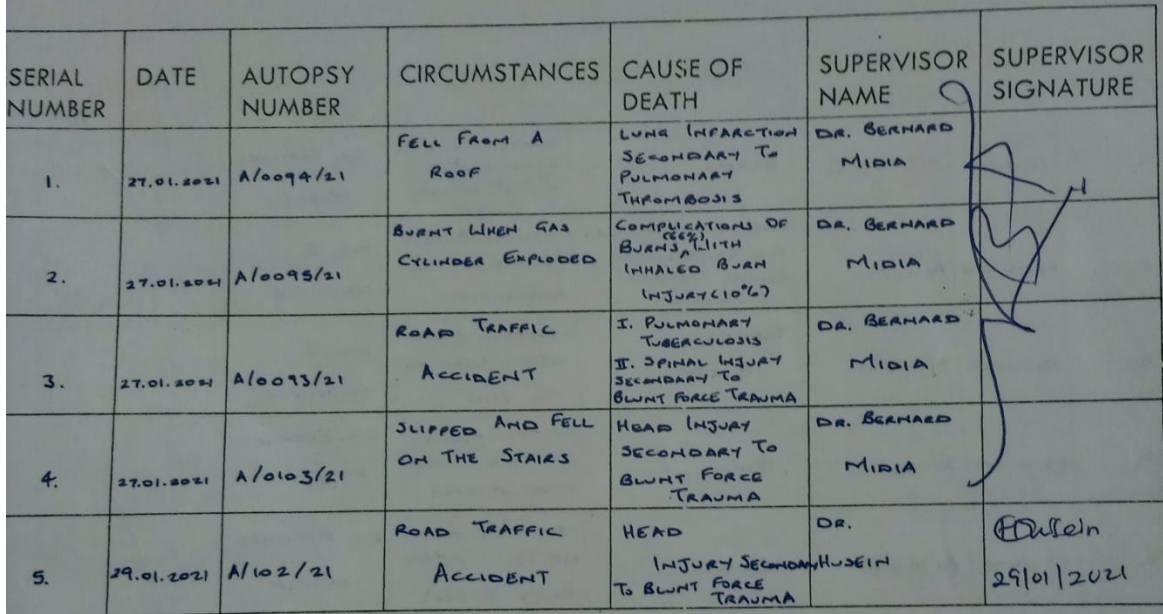 SERIAL NUMBER
DATE
AUTOPSY NUMBER
CIRCUMSTANCES
CAUSE OF DEATH
SUPERVISOR NAME
SUPERVISOR SIGNATURE
1.
27.01.2021
A/0094/21
FELL FROM A
ROOF
LUNG INFARCTION
SECONDARY TO
PULMONARY
THROMBOSIS
DR. BERNARD
MIDIA
2.
27.01.2021
A/0095/21
BURNT WHEN GAS
CYLINDER EXPLODED
COMPLICATIONS OF
BURNS (66%) WITH
INHALED BURN
INJURY (10%)
DR. BERNARD
MIDIA
3.
27.01.2021
A/0093/21
ROAD TRAFFIC
ACCIDENT
I. PULMONARY
TUBERCULOSIS
II. SPINAL INJURY
SECONDARY TO
BLUNT FORCE TRAUMA
DR. BERNARD
MIDIA
4.
27.01.2021
A/0103/21
SLIPPED AND FELL
ON THE STAIRS
HEAD INJURY
SECONDARY TO
BLUNT FORCE
TRAUMA
DR. BERNARD
MIDIA
5.
29.01.2021
A/102/21
ROAD TRAFFIC
ACCIDENT
HEAD
INJURY SECONDARY
TO BLUNT FORCE
TRAUMA
DR.
HUSEIN
29/01/2021